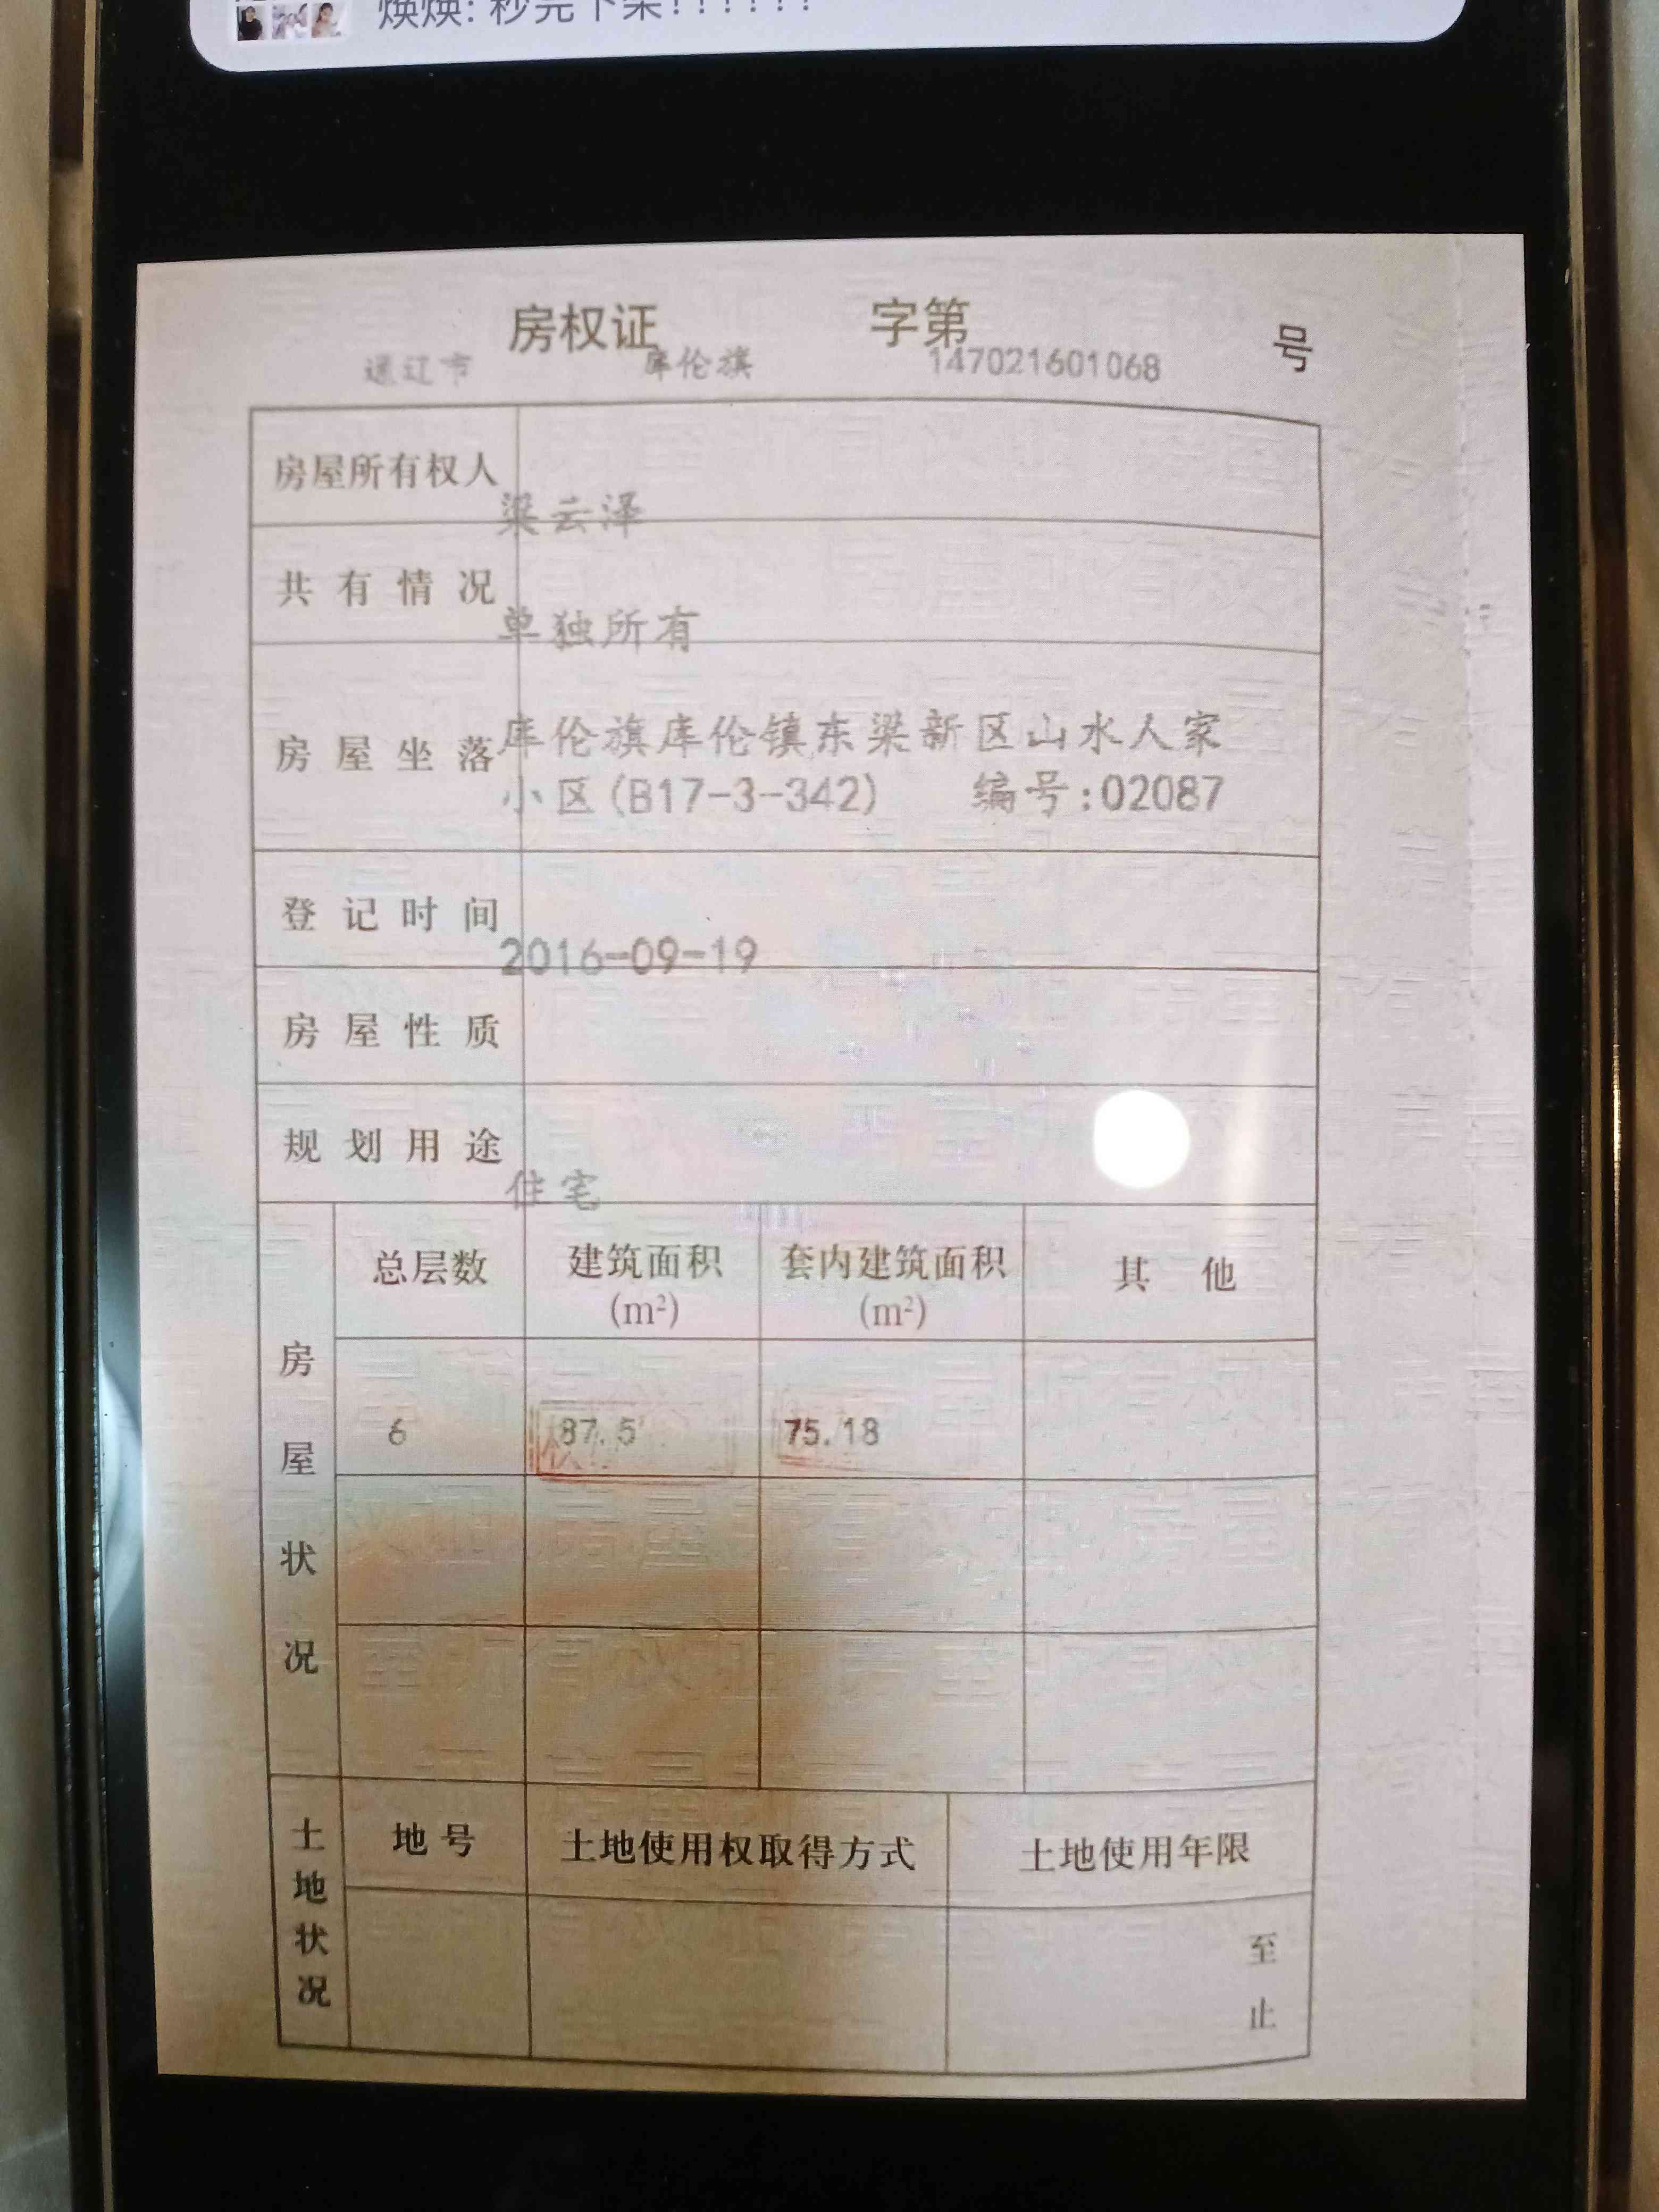 焕焕: 秒完下架!!!!!!
房权证 字第 号
通辽市 库伦旗 147021601068
房屋所有权人
梁云泽
共有情况
单独所有
房屋坐落 库伦旗库伦镇东梁新区山水人家
小区(B17-3-342) 编号:02087
登记时间
2016-09-19
房屋性质
规划用途
住宅
房屋状况
总层数 建筑面积 套内建筑面积 其他
(m²) (m²)
6 87.5 75.18
土地状况
地号 土地使用权取得方式 土地使用年限
至
止